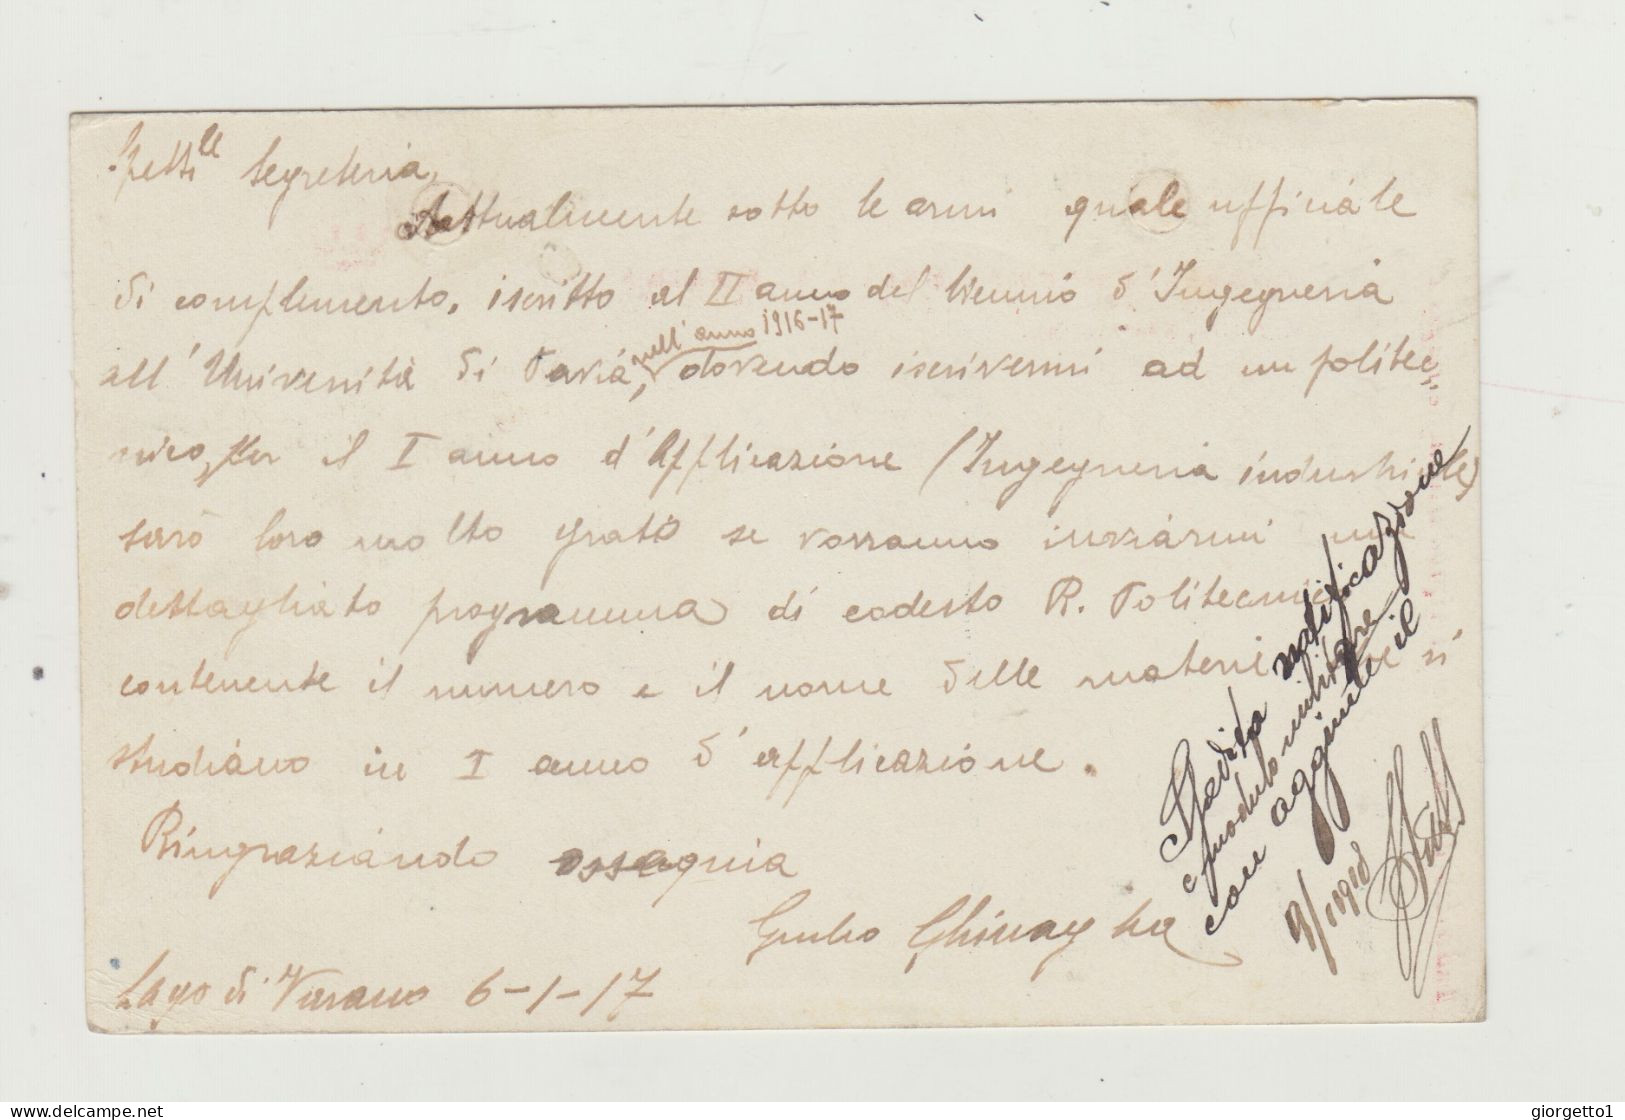 Spett.le Segreteria,
Attualmente sotto le armi quale ufficiale
di complemento, iscritto al II anno del biennio d'Ingegneria
nell'anno 1916-17
all'Università di Pavia, dovendo iscrivermi ad un politec-
nico, per il I anno d'Applicazione (Ingegneria industriale)
sarò loro molto grato se vorranno inviarmi un
dettagliato programma di codesto R. Politecnico
contenente il numero e il nome delle materie che si
studiano in I anno d'applicazione.
Ringraziando ossequia
Giulio
Lago di Varano 6-1-17
Spedita notificazione
e modulo militare
con aggiunte il
9/1 1918